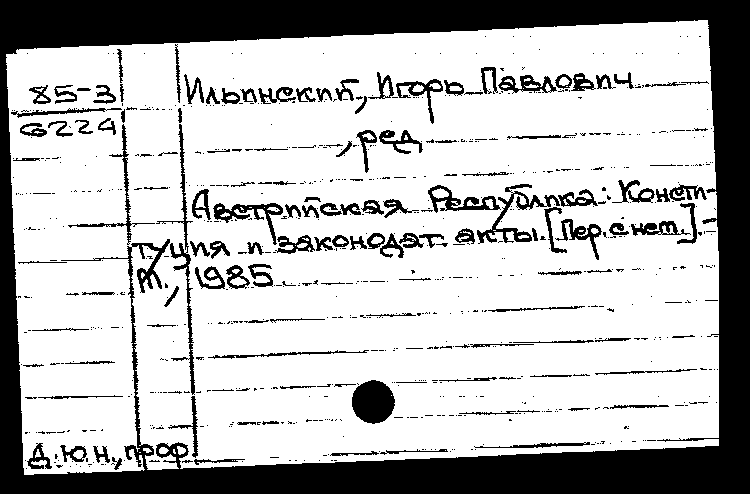 85-3
6224
Ильинский, Игорь Павлович
, ред.
Австрийская Республика: Консти-
туция и законодат. акты. [Пер. с нем.].-
М., 1985.
Д.ю.н., проф.